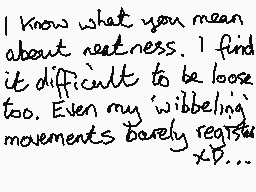 I know what you mean
about neatness. I find
it difficult to be loose
too. Even my 'wibbeling'
movements barely register
xD...